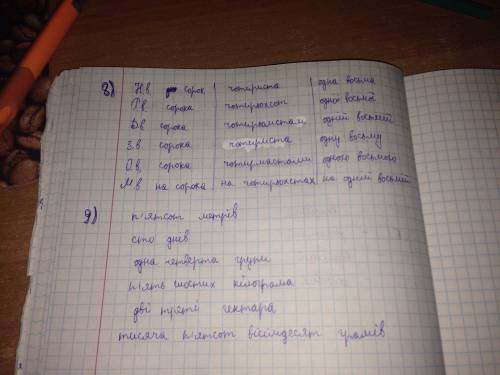 8) Н.в. сорок | чотириста | одна восьма
Р.в. сорока | чотирьохсот | одної восьмої
Д.в. сорока | чотирьомстам | одній восьмій
З.в. сорока | чотириста | одну восьму
О.в. сорока | чотирмастами | одною восьмою
М.в. на сорока | на чотирьохстах | на одній восьмій
9) п'ятсот метрів
сто днів
одна четверта групи
п'ять шостих кілограма
дві треті гектара
тисяча п'ятсот вісімдесят грамів